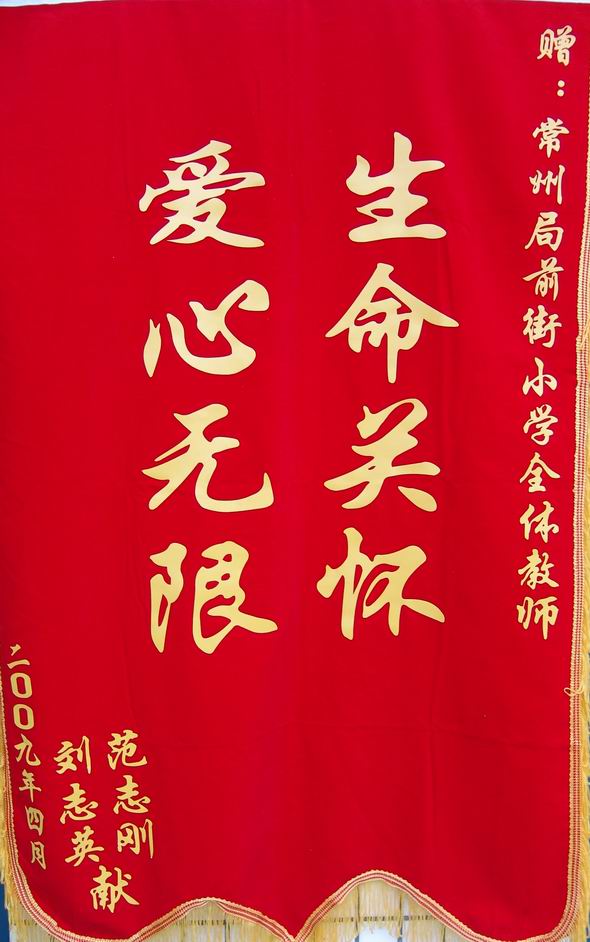 赠：常州局前街小学全体教师
生命关怀
爱心无限
范志刚
刘志英
献
二00九年四月